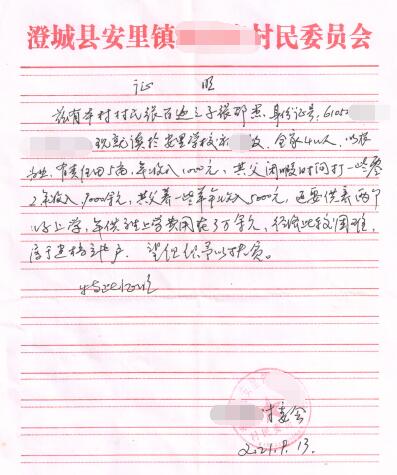 澄城县安里镇 村民委员会
证 明
兹有本村村民张百 之子张 杰,身份证号:6105
现就读于安里学校 校,全家4口人,以农
为业,有责任田5亩,年收入1000元,其父闲暇时间打一些零
工年收入7000余元,其父养一些羊年收入5000元,还要供养两个
上学,年供 上学费用在3万余元,经济比较困难,
属于建档立户. 望组织予以扶贫。
特此证明
村委会
2021.9.13